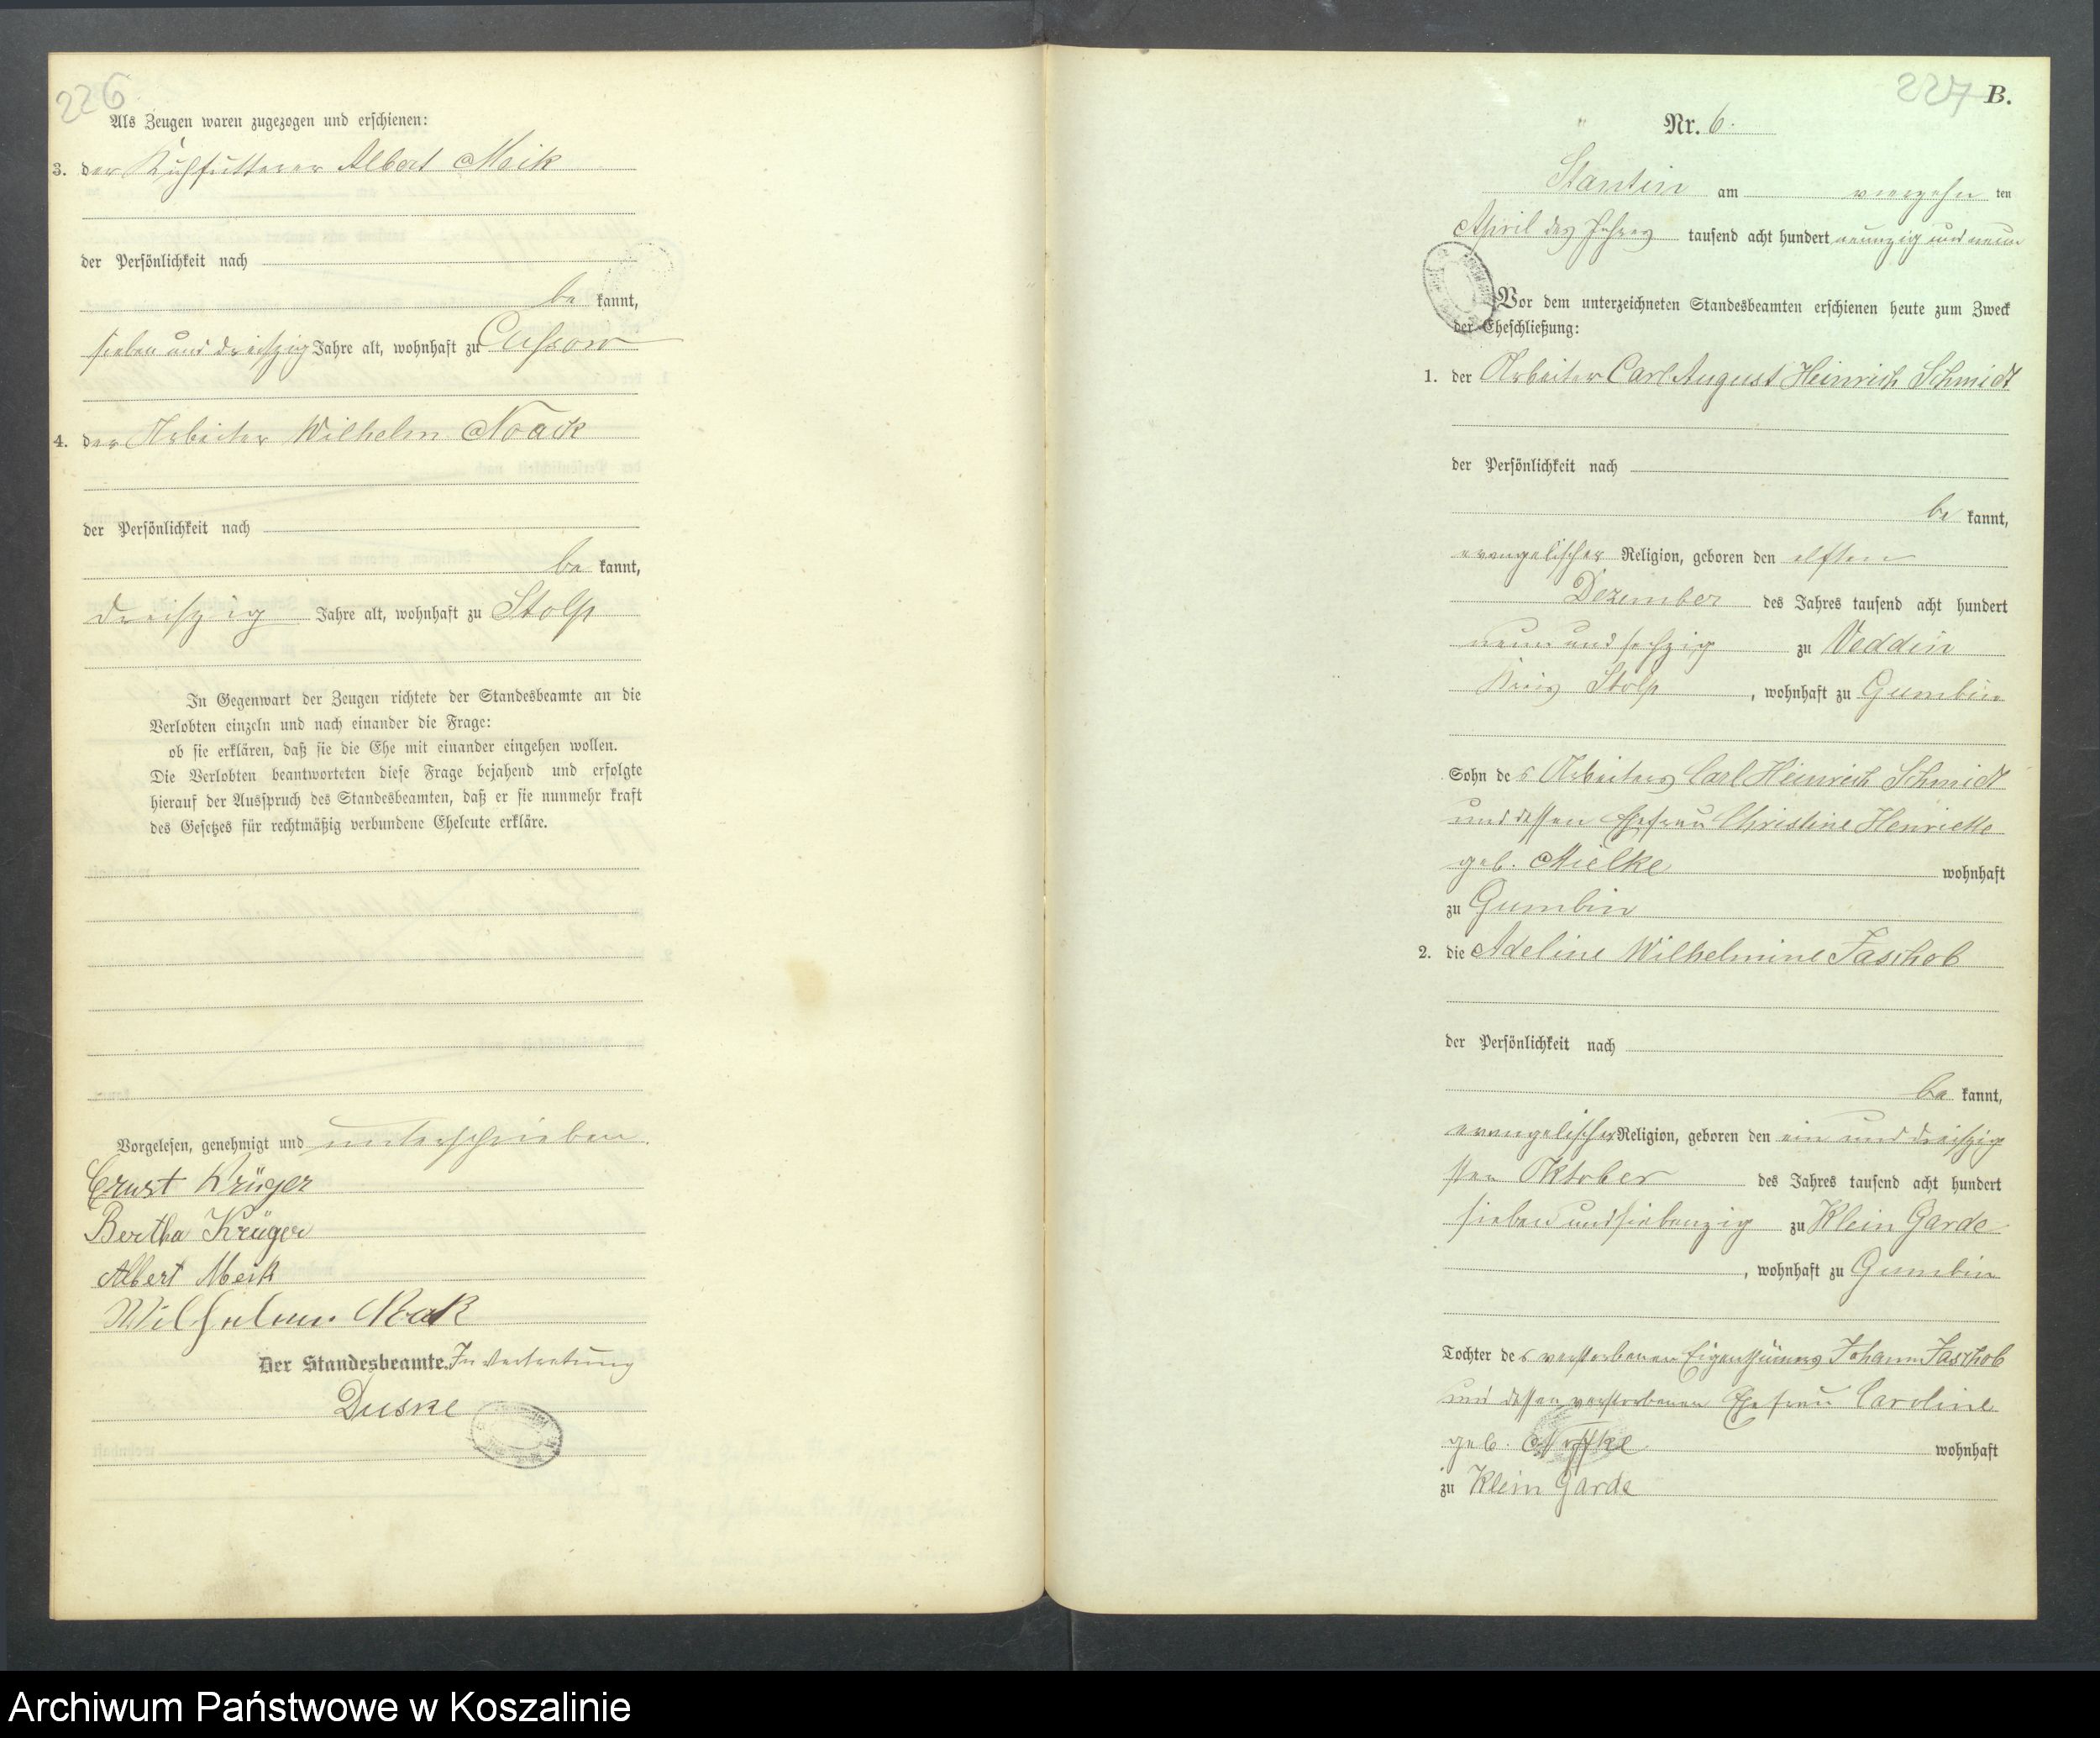 226
Als Zeugen waren zugezogen und erschienen:
3. der Kuhfutterer Albert Meik
der Persönlichkeit nach
be kannt,
sieben und dreißzig Jahre alt, wohnhaft zu Cussow
4. der Arbeiter Wilhelm Noack
der Persönlichkeit nach
be kannt,
dreißzig Jahre alt, wohnhaft zu Stolp
In Gegenwart der Zeugen richtete der Standesbeamte an die
Verlobten einzeln und nach einander die Frage:
ob sie erklären, daß sie die Ehe mit einander eingehen wollen.
Die Verlobten beantworteten diese Frage bejahend und erfolgte
hierauf der Ausspruch des Standesbeamten, daß er sie nunmehr kraft
des Gesetzes für rechtmäßig verbundene Eheleute erkläre.
Vorgelesen, genehmigt und unterschrieben.
Ernst Krüger
Bertha Krüger
Albert Meik
Wilhelm Noak
Der Standesbeamte. In Vertretung
Duske
227 B.
Nr. 6.
Stantin am vierzehn ten
April des Jahres tausend acht hundert neunzig und neun
Vor dem unterzeichneten Standesbeamten erschienen heute zum Zweck
der Eheschließung:
1. der Arbeiter Carl August Heinrich Schmidt
der Persönlichkeit nach
be kannt,
evangelischer Religion, geboren den elften
Dezember des Jahres tausend acht hundert
neun und sechzig zu Veddin
Kreis Stolp, wohnhaft zu Gumbin
Sohn des Arbeiters Carl Heinrich Schmidt
und dessen Ehefrau Christine Henriette
geb. Mielke wohnhaft
zu Gumbin
2. die Adeline Wilhelmine Jaschob
der Persönlichkeit nach
be kannt,
evangelischer Religion, geboren den ein und dreißzig
sten Oktober des Jahres tausend acht hundert
sieben und siebenzig zu Klein Garde
, wohnhaft zu Gumbin
Tochter des verstorbenen Eigenthümers Johann Jaschob
und dessen verstorbenen Ehefrau Caroline
geb. wohnhaft
zu Klein Garde
Archiwum Państwowe w Koszalinie